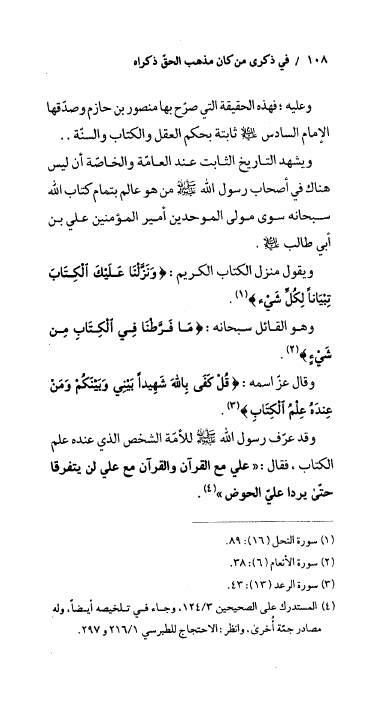 ١٠٨ / في ذكرى من كان مذهب الحقّ ذكراه
وعليه ؛ فهذه الحقيقة التي صرّح بها منصور بن حازم وصدّقها
الإمام السادس ﷺ ثابتة بحكم العقل والكتاب والسنّة . .
ويشهد التاريخ الثابت عند العامّة والخاصّة أن ليس
هناك في أصحاب رسول الله ﷺ من هو عالم بتمام كتاب الله
سبحانه سوى مولى الموحدين أمير المؤمنين علي بن
أبي طالب .
ويقول منزل الكتاب الكريم : ﴿ وَنَزَّلْنَا عَلَيْكَ ٱلْكِتَابَ
تِبْيَاناً لِكُلِّ شَيْء ﴾(١) .
وهو القائل سبحانه : ﴿ مَا فَرَّطْنَا فِي ٱلْكِتَابِ مِن
شَيْءٍ ﴾(٢) .
وقال عزّ اسمه : ﴿ قُلْ كَفَى بِاللهِ شَهِيداً بَيْنِي وَبَيْنَكُمْ وَمَنْ
عِندَهُ عِلْمُ ٱلْكِتَابِ ﴾(٣) .
وقد عرّف رسول الله ﷺ للأمّة الشخص الذي عنده علم
الكتاب ، فقال : « علي مع القرآن والقرآن مع علي لن يتفرقا
حتّىٰ يردا عليّ الحوض »(٤) .
(١) سورة النحل (١٦): ٨٩.
(٢) سورة الأنعام (٦): ٣٨.
(٣) سورة الرعد (١٣): ٤٣.
(٤) المستدرك على الصحيحين ١٢٤/٣، وجاء في تلخيصه أيضاً، وله
مصادر جمّة أُخرىٰ، وانظر: الاحتجاج للطبرسي ٢١٦/١ و ٢٩٧.